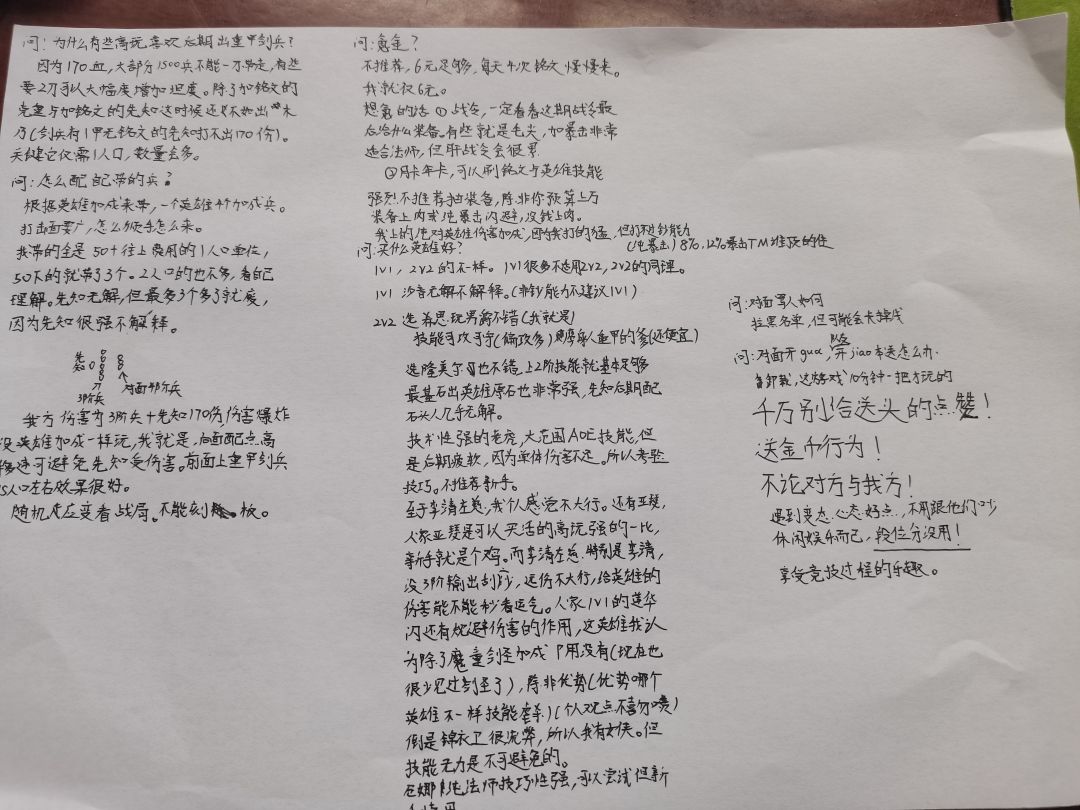 问：为什么有些高玩喜欢后期出重甲剑兵？
因为170血，大部分1500兵不能一刀带走，有些
要2刀可以大幅度增加坦度。除了加铭文的
克星与加铭文的先知这时候还不如出
乃（剑兵有1甲无铭文的先知打不出170伤）。
关键它仅需1人口，数量会多。
问：怎么配自己带的兵？
根据英雄加成来带，一个英雄4个加成兵。
打击面要广，怎么顺手怎么来。
我带的全是50+往上费用的1人口单位，
50下的就带了3个。2人口的也不多，看自己
理解。先知无解，但最多3个多了就废，
因为先知很强不解释。
先知
对面部分兵
3阶兵
我方伤害为3阶兵+先知170伤伤害爆炸
没英雄加成一样玩，我就是，后面配点高
移速可避免先知受伤害。前面上重甲剑兵
15人口左右效果很好。
随机应变看战局。不能刻板。
问：氪金？
不推荐，6元足够，每天4次铭文慢慢来。
我就仅6元。
想氪的话 ①战令，一定看看这期战令最
后给什么装备。有些就是毛夫，如暴击非常
适合法师，但肝战令会很累
②月卡年卡，可以刷铭文与英雄技能
强烈不推荐抽装备，除非你预算上万
装备上肉或纯暴击闪避，没钱上肉。
我上的是对英雄伤害加成，因为我打的猛，但打不过钞能力
（纯暴击）8%，12%暴击TM堆及的住
问：买什么英雄好？
1v1，2v2的不一样。1v1很多不适用2v2，2v2的同理。
1v1 沙音无解不解释。（非钞能力不建议1v1）
2v2 选 希思玩男爵不错（我就是）
技能可攻可守（偏攻多）摩乘队重甲的爹（还便宜）
选隆美尔也不错，上2阶技能就基本足够
最基石出英雄原石也非常强，先知后期配
石头人几乎无解。
技术性强的老虎，大范围AOE技能，但
是后期疲软，因为单体伤害不足。所以考验
技巧。不推荐新手。
至于李清左慈，我个人感觉不大行。还有亚瑟，
人家亚瑟是可以买活的高玩强的一比，
新手就是个鸡。而李清左慈，特别是李清，
没3阶输出刮痧，近伤不大行，给英雄的
伤害能不能秒看运气。人家1v1的莲华
闪还有规避伤害的作用，这英雄我认
为除了魔童剑圣加成P用没有（现在也
很少见过剑圣了），除非优势（优势哪个
英雄不一样技能虐杀）（个人观点不喜勿喷）
倒是锦衣卫很流弊，所以我有女侠。但
技能无力是不可避免的。
法师技巧性强，可以尝试但新
问：对面骂人如何
拉黑名单，但可能会卡掉线
问：对面开gua，队友开jiao本送怎么办
卸载，这游戏10分钟一把才玩的
千万别给送头的点赞！
送金币行为！
不论对方与我方！
遇到变态，心态好点，不用跟他们吵
休闲娱乐而已，段位分没用！
享受竞技过程的乐趣。